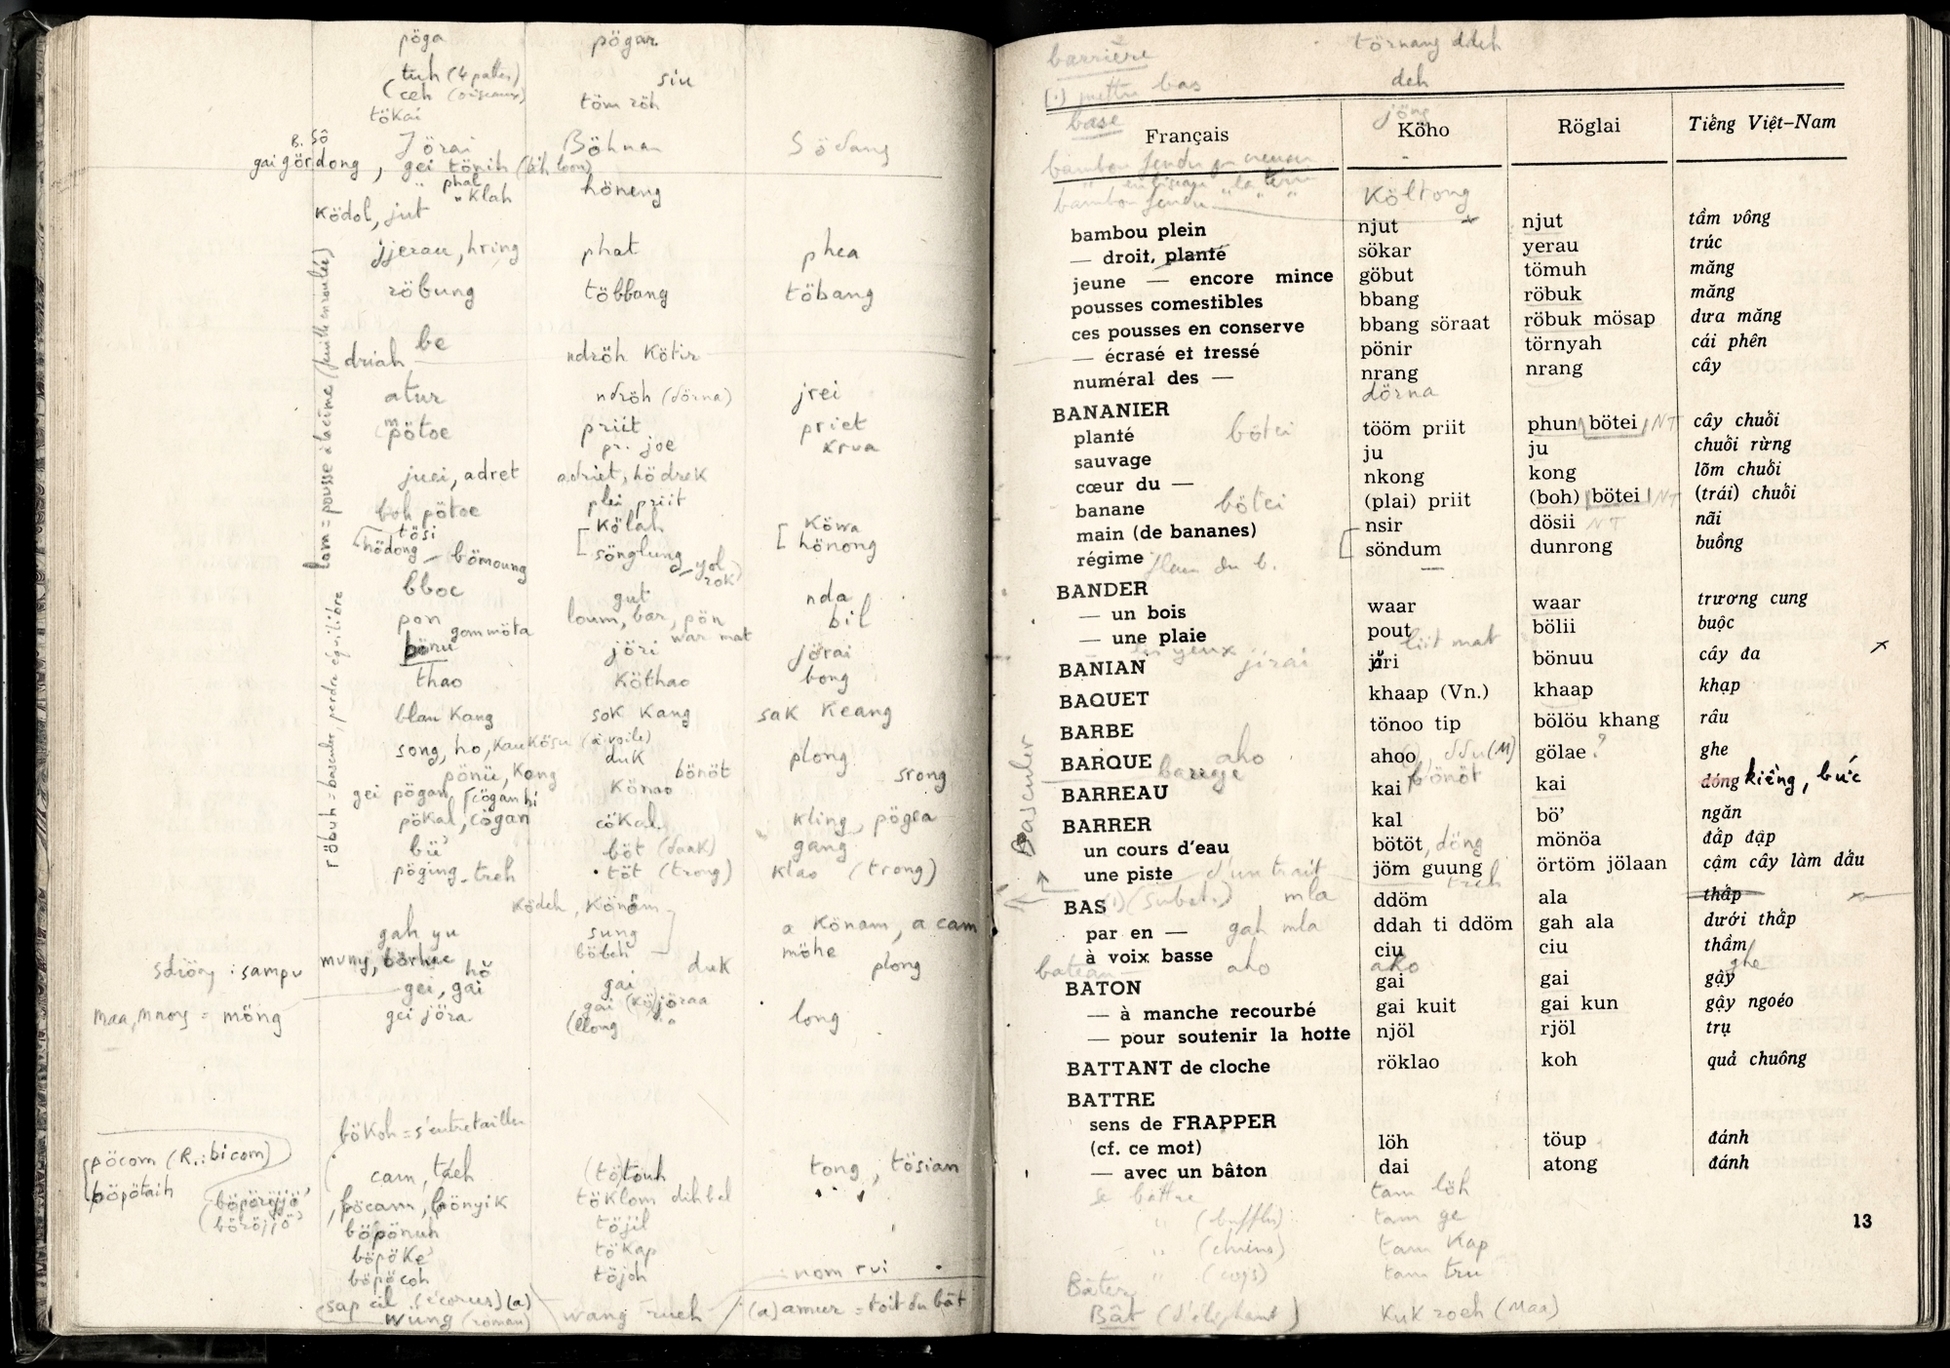 pöga pögar
tuh (4 pattes) siu
ceh (oiseaux) töm röh
tökai
B. Sô Jörai Böhnar Södang
gai gördong, gei tönih (bih loon)
" phal höneng
" klah
ködol, jut
jjerau, hring phat phea
röbung többang töbang
be
driah ndröh kötir
atur ndröh (dörna) jrei
mpötoe priit priet
pr. joe krua
juei, adret adriet, hödrek
boh pötoe plei priit
tösi kölahköwa
hödong – bömoung sönglung hönong
yol
rok)
bboc gut nda
pon loum, bar, pön bil
gommöta war mat
bönu jöri jörai
thao köthao bong
blau kang sok kang sak keang
song, ho, kau kösu (à voile) plong
duk
pönü, kong bönöt srong
gei pögan, cögan hi könao
pökal, cögan cökal kling, pögea
bü' böt (daak) gang
pöging-treh töt (trong) klao (trong)
ködeh, könöm
gah yu sung a könam, a cam
böbeh möhe
sdiöng : sampu duk plong
hŏ
gei, gai gai
maa, mnong = möng gei jöra gai (kö)jöraa long
(llong
lom = pousse à la cime (feuille enroulée)
röbuh = basculer, perdre équilibre
bökoh = s'entretailler
pöcom (R.: bicom)
cam, taeh (tö)touh tong, tösian
böpötaih
böpöröjjö' böcam, bönyik töklom dih bel
(böröjjö' böpönuh töjil
böpöke' tökap
böpöcoh töjoh nom rui
sap cil (écorus)(a) wang rueh (a) amur = toit du bât
wung (roman)
barrière törnang ddeh
(.) mettre bas deh
base jöng
Français Köho Röglai Tiếng Việt-Nam
bambou fendu en creneau
bambou fendu költong
bambou plein njut njut tầm vông
— droit, planté sökar yerau trúc
jeune — encore mince göbut tömuh măng
pousses comestibles bbang röbuk măng
ces pousses en conserve bbang söraat röbuk mösap dưa măng
— écrasé et tressé pönir törnyah cái phên
numéral des — nrang nrang cây
dörna
BANANIER
planté bötei tööm priit phun bötei NT cây chuối
sauvage ju ju chuối rừng
cœur du — nkong kong lõm chuối
banane bötei (plai) priit (boh) bötei NT (trái) chuối
main (de bananes) nsir dösii NT nãi
régime söndum dunrong buồng
fleur du b.
BANDER
— un bois waar waar trương cung
— une plaie pout bölii buộc
les yeux liit mat
BANIAN jirai jri bönuu cây đa
BAQUET khaap (Vn.) khaap khạp
BARBE tönoo tip bölöu khang râu
BARQUE aho ahoo ddu (M) gölae ? ghe
barrage bönöt
BARREAU kai kai dóng kiềng, bức
BARRER kal bö’ ngăn
un cours d’eau bötöt, döng mönöa đắp đập
une piste d'un trait jöm guung örtöm jölaan cậm cây làm dấu
treh
Basculer
BAS (1) (subst.) mla ddöm ala thấp
par en — gah mla ddah ti ddöm gah ala dưới thấp
à voix basse ciu ciu thầm
bateau — aho ako ghe
BATON gai gai gậy
— à manche recourbé gai kuit gai kun gậy ngoéo
— pour soutenir la hotte njöl rjöl trụ
BATTANT de cloche röklao koh quả chuông
BATTRE
sens de FRAPPER
(cf. ce mot) löh töup đánh
— avec un bâton dai atong đánh
se battre tam löh
" (buffles) tam ge
" (chiens) tam kap
" (coqs) tam tru
Bâter
Bât (d'éléphant) kuk roeh (Maa)
13